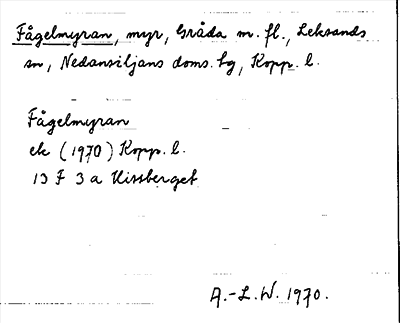 Fågelmyran, myr, Gråda m. fl., Leksands
sn, Nedansiljans doms. tg, Kopp. l.
Fågelmyran
ek (1970) Kopp. l.
13 F 3 a Hissberget
A.-L.W. 1970.